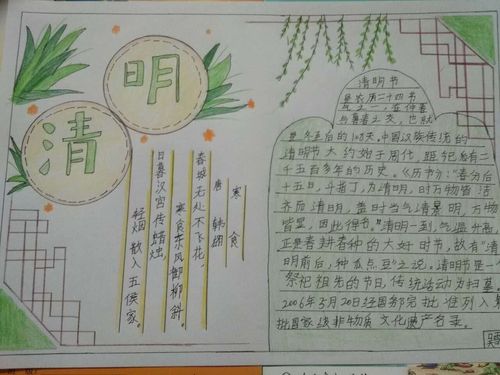 清明
寒食
唐 韩翃
春城无处不飞花,
寒食东风御柳斜。
日暮汉宫传蜡烛,
轻烟散入五侯家。
清明节
是农历二十四节
气之一,在仲春
与暮春之交,也就
是冬至后的108天。中国汉族传统的
清明节大约始于周代,距已有二
千五百多年的历史。《历书》:“春分后
十五日,斗指丁,为清明,时万物皆洁
齐而清明,盖时当气清景明,万物
皆显,因此得名。”清明一到,气温升高,
正是春耕春种的大好时节,故有“清
明前后,种瓜点豆”之说。清明节是一
祭祀祖先的节日,传统活动为扫墓。
2006年5月20日经国务院批准列入
批国家级非物质文化遗产名录。